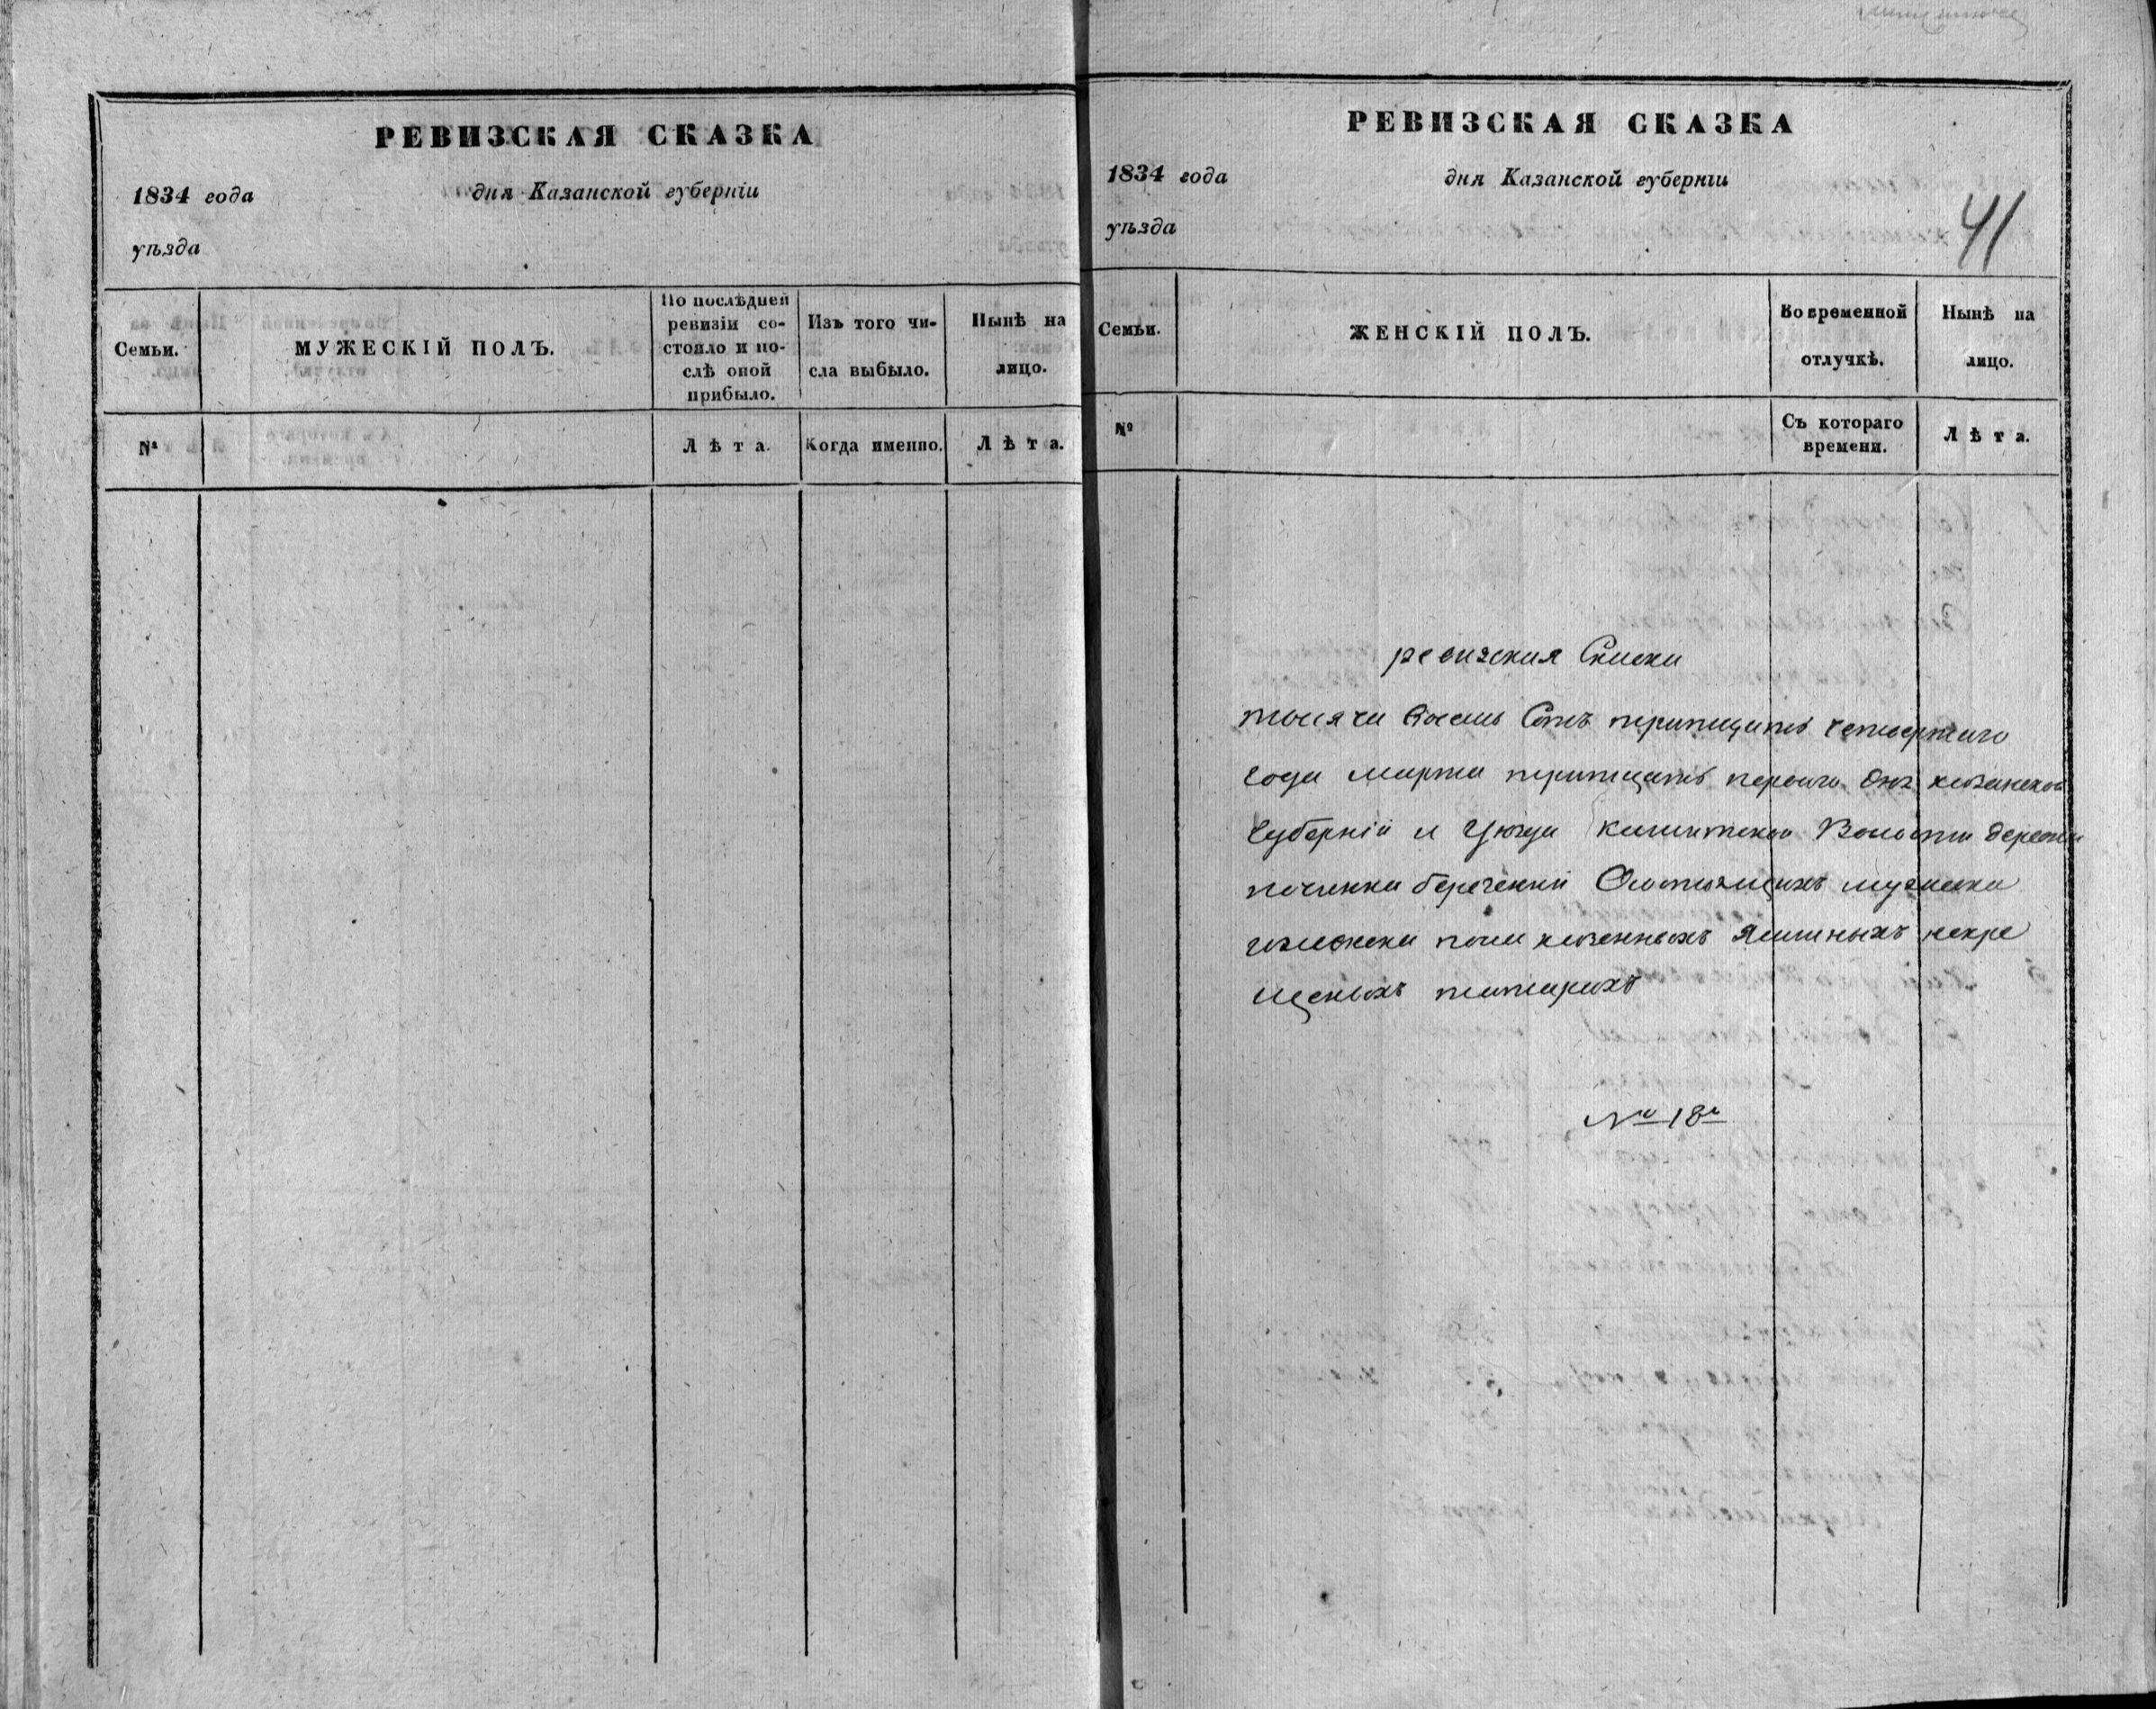 РЕВИЗСКАЯ СКАЗКА
1834 года дня Казанской губернiи
уѣзда
Семьи.
МУЖЕСКIЙ ПОЛЪ.
По послѣдней
ревизiи со-
стояло и по-
слѣ оной
прибыло.
Изъ того чи-
сла выбыло.
Нынѣ на
лицо.
№
Лѣта.
Когда именно.
Лѣта.
РЕВИЗСКАЯ СКАЗКА
1834 года дня Казанской губернiи
уѣзда
41
Семьи.
ЖЕНСКIЙ ПОЛЪ.
Во временной
отлучкѣ.
Нынѣ на
лицо.
№
Съ котораго
времени.
Лѣта.
ревизская Скаска
тысяча восемь Сотъ тритцать четвертаго
года марта тритцать перваго дня казанской
губернiй и уѣзда Волости деревни
починка Состоящихъ мужеска
и женска пола казенныхъ Ясашныхъ некре
щеныхъ татарахъ
№ 18й